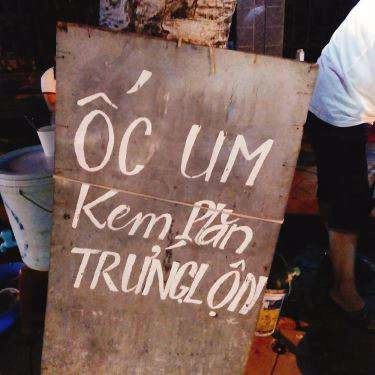 ỐC UM
Kem Plăn
TRỨNG LỘN